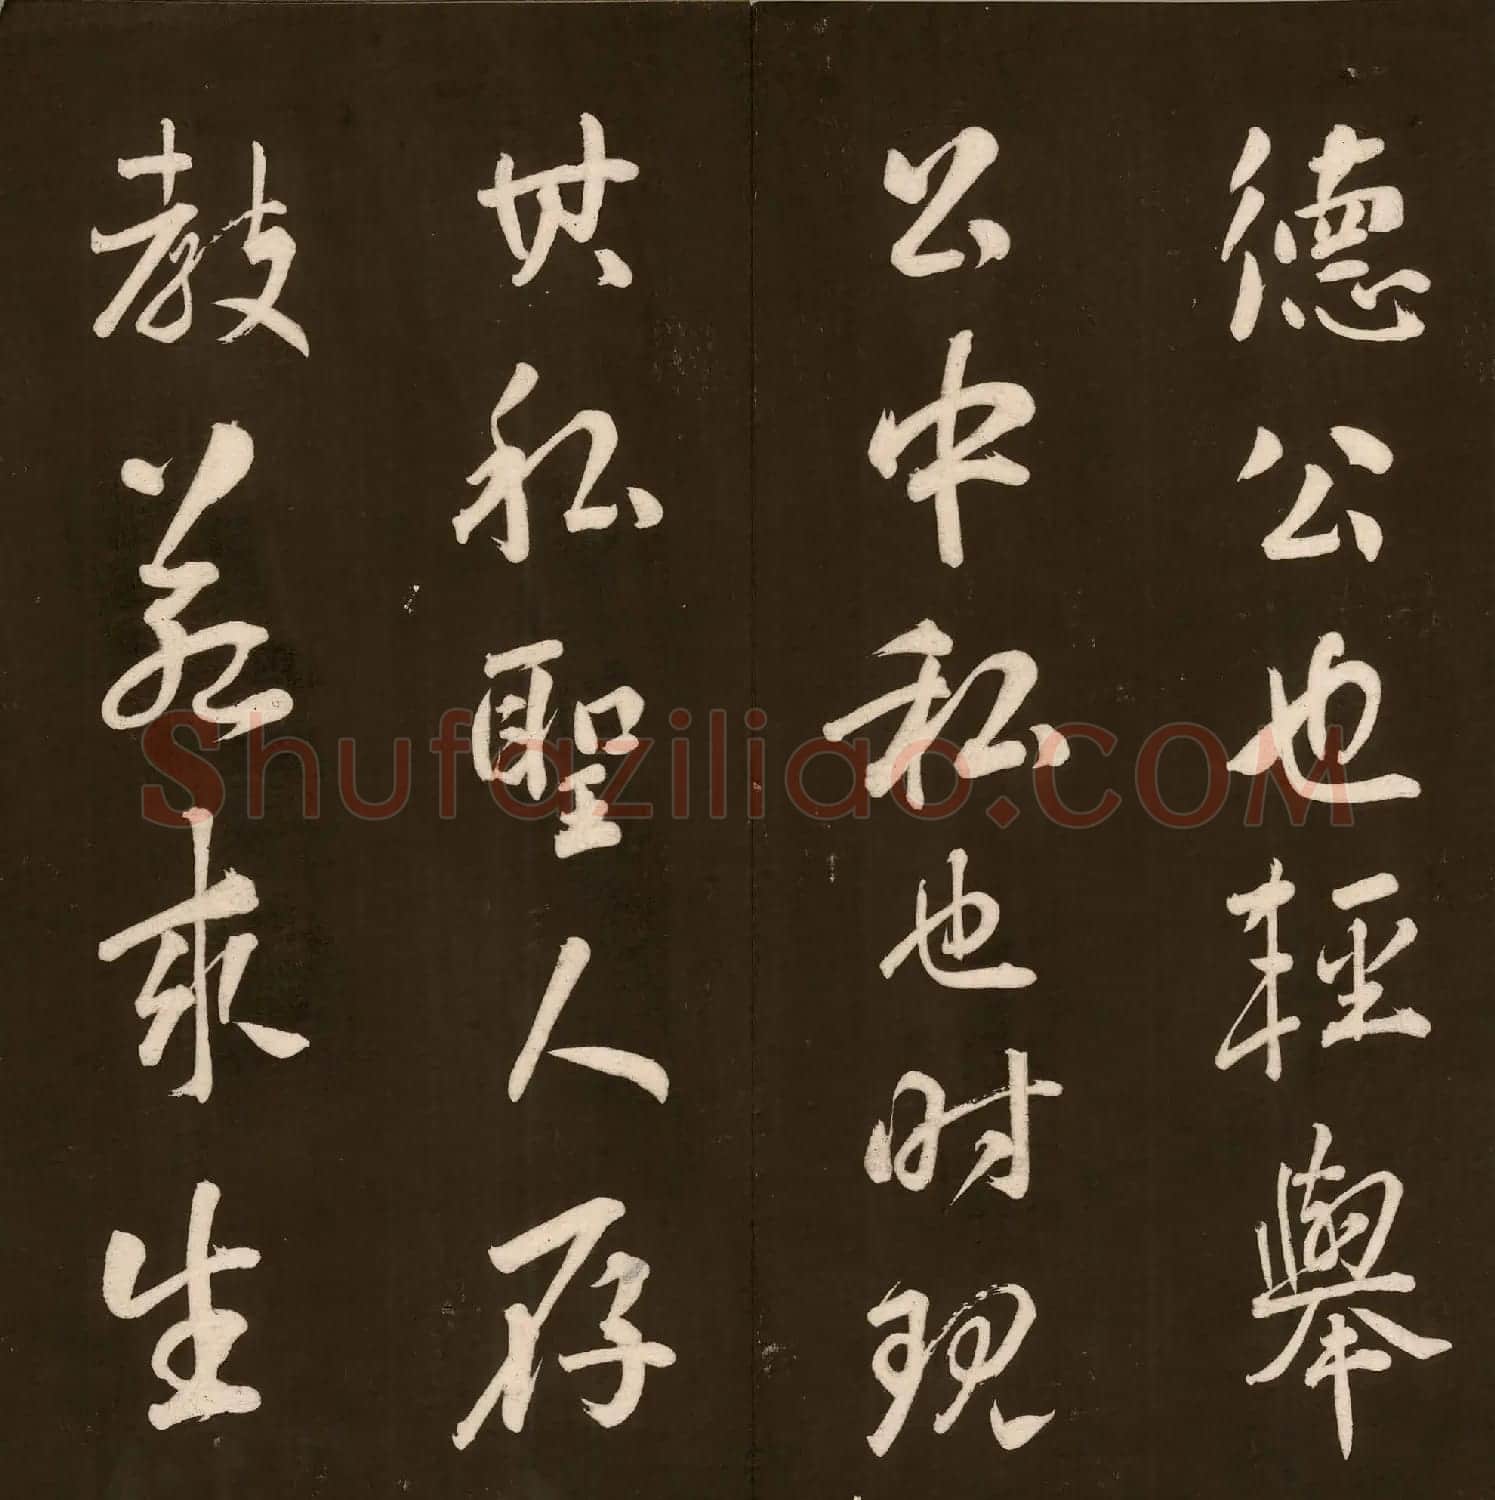 德公也輕舉
公中私也时現
其私聖人存
教若求生
Shufaziliao.COM